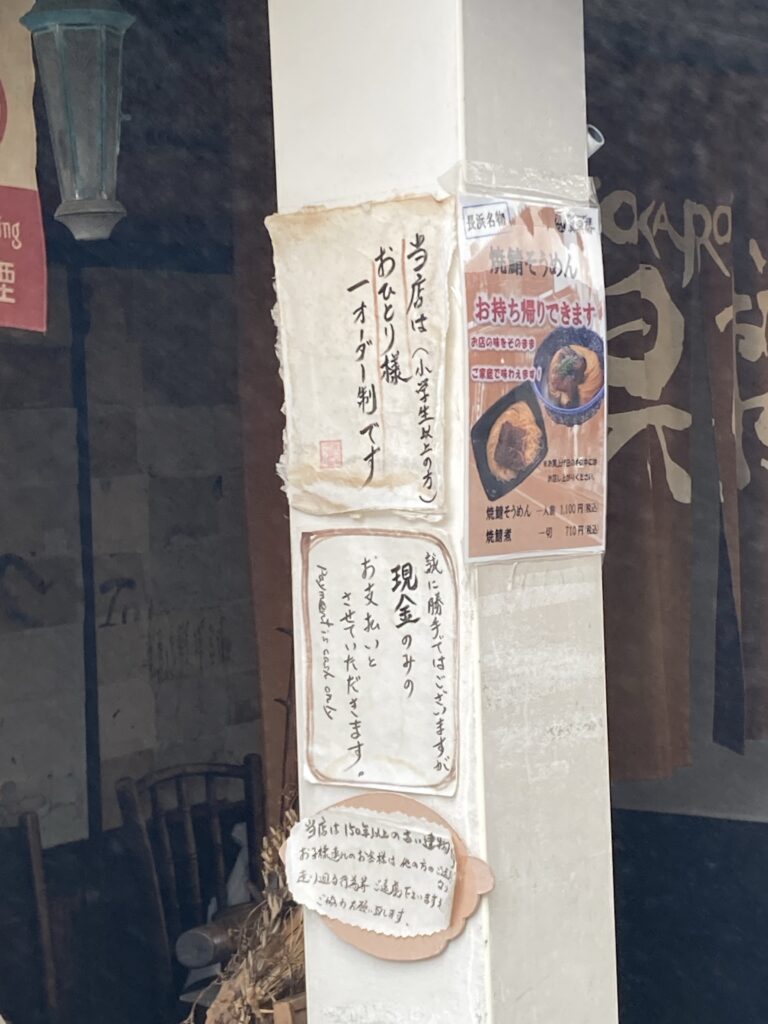 当店は（小学生以上の方）
おひとり様
一オーダー制です
長浜名物
焼鯖そうめん
お持ち帰りできます
お店の味をそのまま
ご家庭で味わえます！
※お買上げ日の
お召し上がりください。
焼鯖そうめん 一人前 1,100円(税込)
焼鯖煮 一切 710円(税込)
誠に勝手ではございますが
現金のみの
お支払いと
させていただきます。
payment is cash only
当店は150年以上の古い建物
お子様連れのお客様は他の方の
走り回る行為等ご遠慮
ご協力お願い致します。
OKAIRO
ing
煙